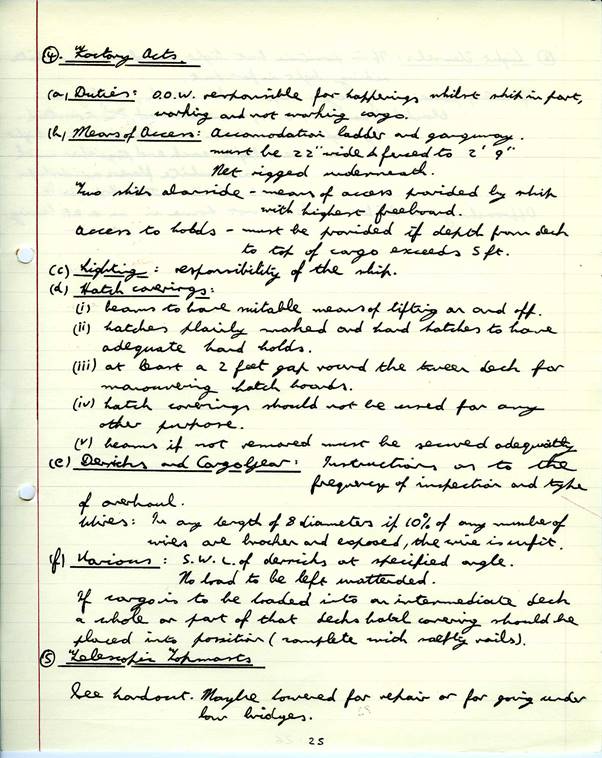 ④. Factory Acts.
(a) Duties: O.O.W. responsible for happenings whilst ship in port,
working and not working cargo.
(b) Means of Access: Accomodation ladder and gangway.
must be 22" wide & fenced to 2' 9"
Net rigged underneath.
Two ships alongside - means of access provided by ship
with highest freeboard.
Access to holds - must be provided if depth from deck
to top of cargo exceeds 5 ft.
(c) Lighting: responsibility of the ship.
(d) Hatch coverings:
(i) beams to have suitable means of lifting on and off.
(ii) hatches plainly marked and hard hatches to have
adequate hand holds.
(iii) at least a 2 feet gap round the tween deck for
manouvering hatch boards.
(iv) hatch coverings should not be used for any
other purpose.
(v) beams if not removed must be secured adequately
(e) Derricks and Cargo Gear: Instructions as to the
frequency of inspection and type
of overhaul.
Wires: In any length of 8 diameters if 10% of any number of
wires are broken and exposed, the wire is unfit.
(f) Various: S.W.L. of derricks at specified angle.
No load to be left unattended.
If cargo is to be loaded into an intermediate deck
a whole or part of that decks hatch covering should be
placed into possition (complete with safety rails).
⑤ Telescopic Topmasts
See handout. Maybe lowered for repair or for going under
low bridges.
25